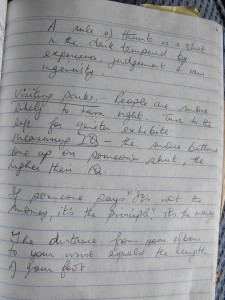 A rule of thumb is a shot
in the dark tempered by
experience, judgement & raw
ingenuity.
Visiting parks - People are more
likely to turn right. Turn to the
left for quieter exhibits
Measuring IQ - the more buttons
done up on someone's shirt, the
higher their IQ.
If someone says "It's not the
money, it's the principle", it's the money
The distance from your elbow
to your wrist equals the length
of your foot